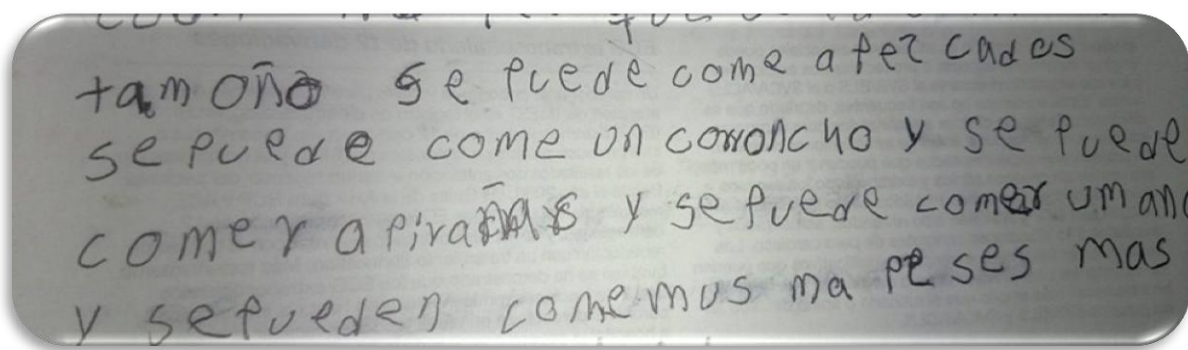 tamoño se puede come a pezcados
se puede come un corroncho y se puede
comer a pirañas y se puede comer uman
y se pueden comemos ma peses mas